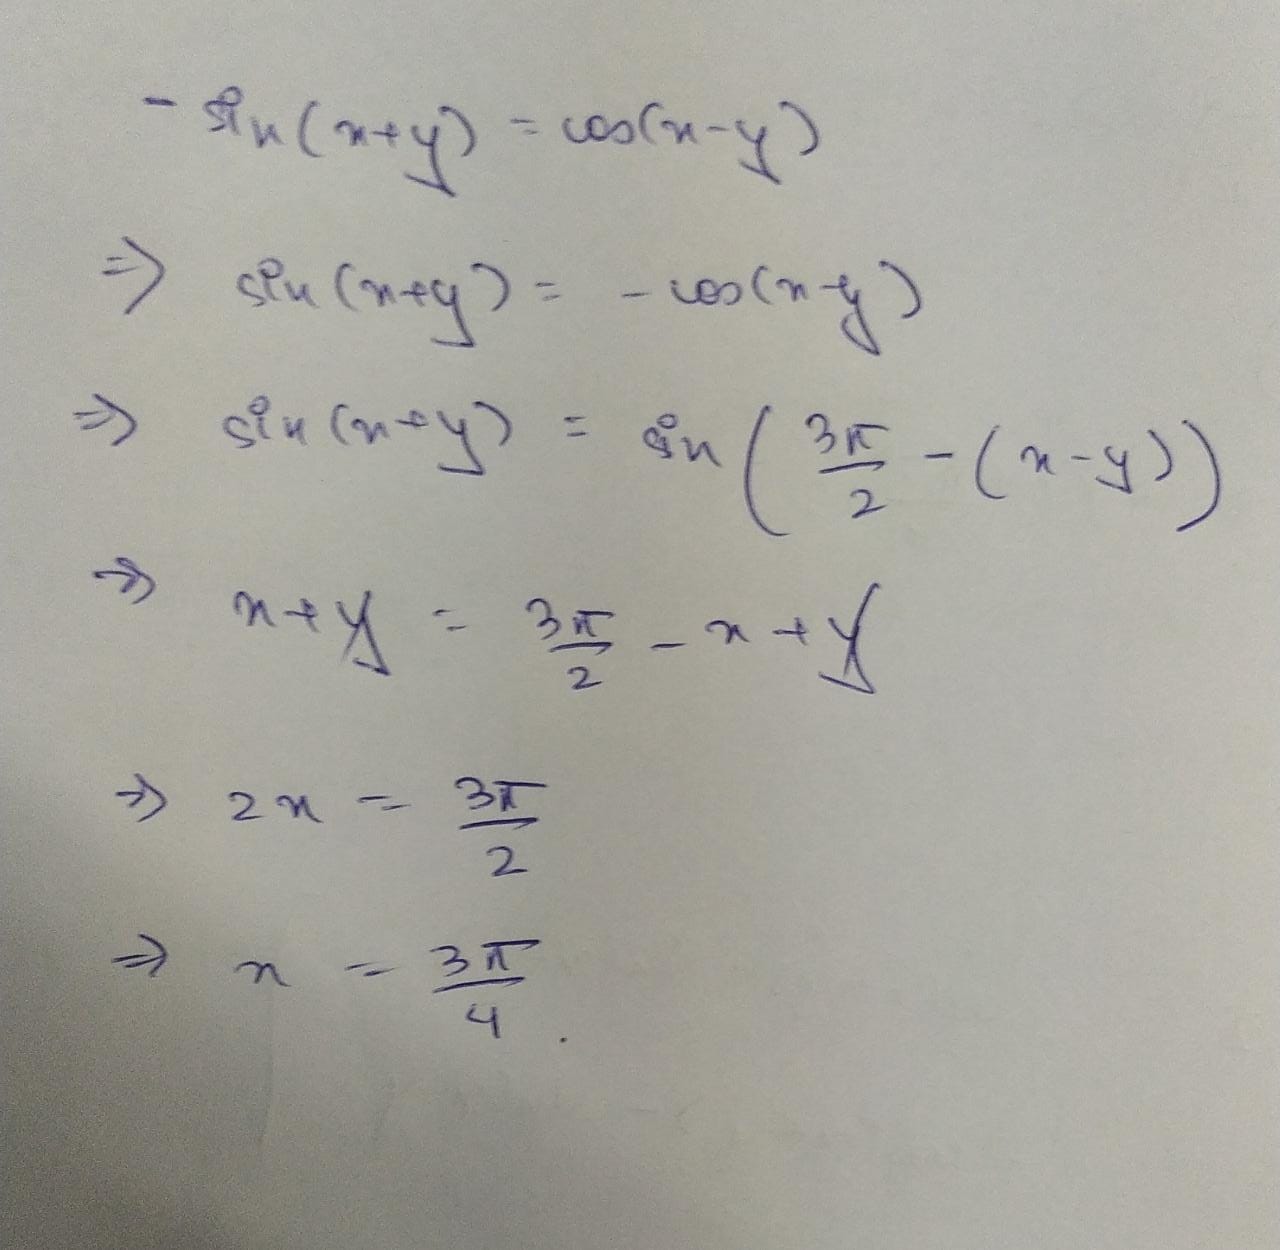 - sin(x+y) = cos(x-y)
⇒ sin(x+y) = - cos(x-y)
⇒ sin(x+y) = sin(3π/2 - (x-y))
⇒ x+y = 3π/2 - x + y
⇒ 2x = 3π/2
⇒ x = 3π/4.